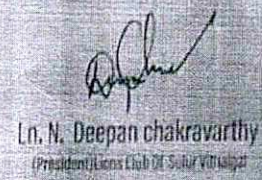 Ln. N. Deepan chakravarthy
(President)Lions Club Of Sulur